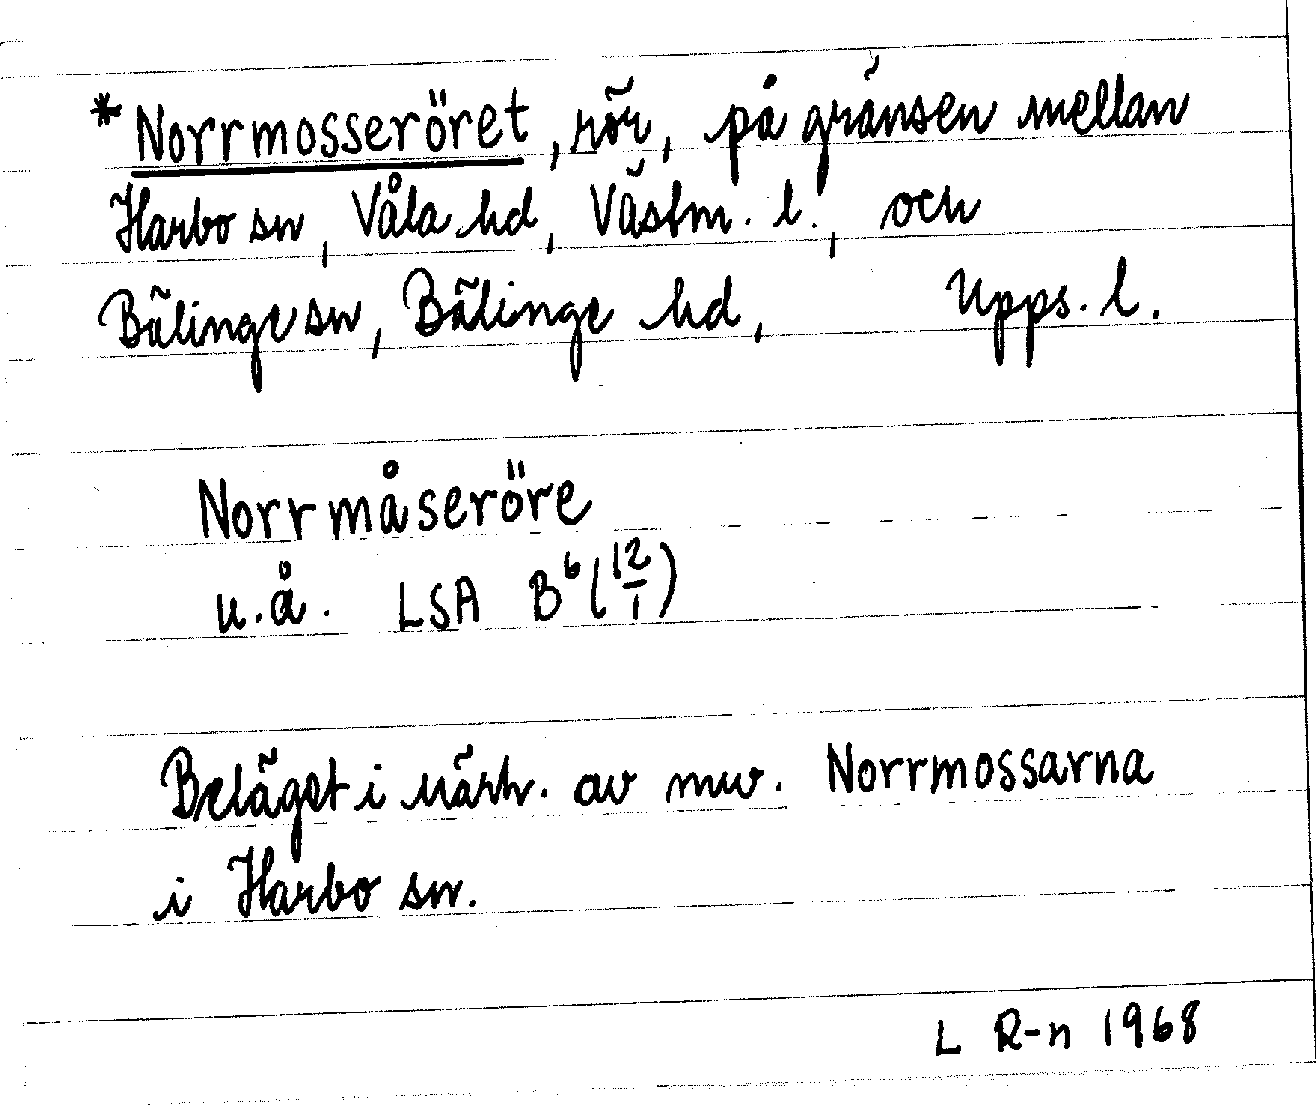 *Norrmosseröret, rör, på gränsen mellan
Harbo sn, Våla hd, Västm. l., och
Bälinge sn, Bälinge hd, Upps. l.
Norrmåseröre
u.å. LSA B⁶(12/1)
Beläget i närh. av mw. Norrmossarna
i Harbo sn.
L R-n 1968